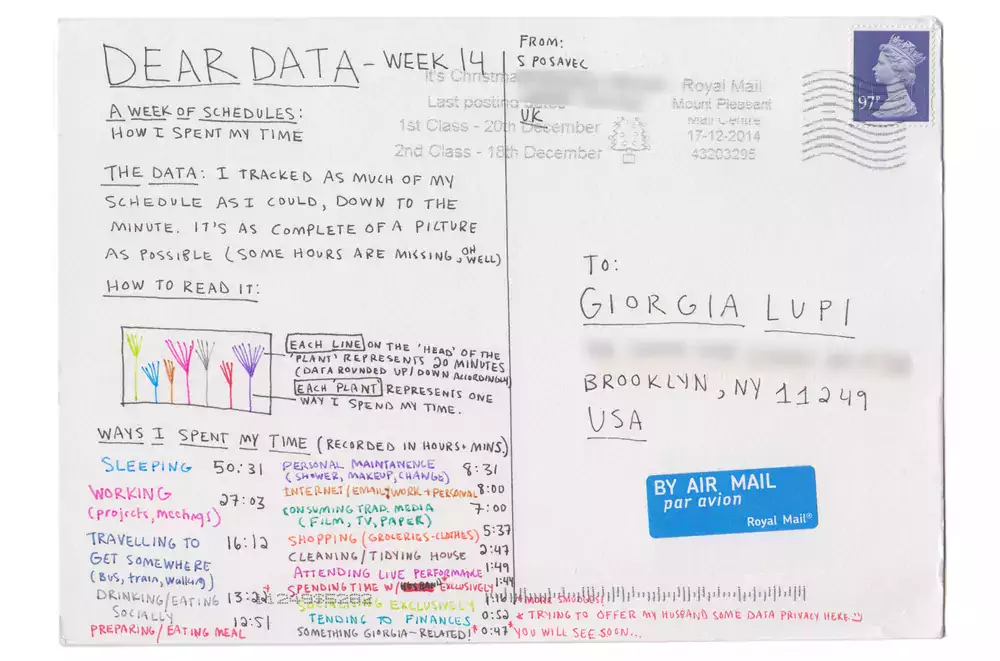 DEAR DATA - WEEK 14
A WEEK OF SCHEDULES:
HOW I SPENT MY TIME
THE DATA: I TRACKED AS MUCH OF MY
SCHEDULE AS I COULD, DOWN TO THE
MINUTE. IT'S AS COMPLETE OF A PICTURE
AS POSSIBLE (SOME HOURS ARE MISSING, OH WELL)
HOW TO READ IT:
EACH LINE ON THE 'HEAD' OF THE
'PLANT' REPRESENTS 20 MINUTES
(DATA ROUNDED UP/DOWN ACCORDINGLY)
EACH 'PLANT' REPRESENTS ONE
WAY I SPEND MY TIME.
WAYS I SPENT MY TIME (RECORDED IN HOURS + MINS.)
SLEEPING 50:31
WORKING 27:03
(projects, meetings)
TRAVELLING TO 16:12
GET SOMEWHERE
(BUS, train, walking)
DRINKING/EATING 13:22
SOCIALLY
PREPARING/EATING MEAL 12:51
PERSONAL MAINTANENCE 8:31
(SHOWER, MAKEUP, CHANGE)
INTERNET/EMAIL: WORK + PERSONAL 8:00
CONSUMING TRAD. MEDIA 7:00
(FILM, TV, PAPER)
SHOPPING (GROCERIES-CLOTHES) 5:37
CLEANING/TIDYING HOUSE 2:47
ATTENDING LIVE PERFORMANCE 1:49
SPENDING TIME W/ HUSBAND* EXCLUSIVELY 1:44
EXCLUSIVELY 1:16
TENDING TO FINANCES 0:52
SOMETHING GIORGIA-RELATED! 0:47
* TRYING TO OFFER MY HUSBAND SOME DATA PRIVACY HERE
* YOU WILL SEE SOON...
FROM:
S POSAVEC
UK
It's Christma
Last posting dates
1st Class - 20th December
2nd Class - 18th December
Royal Mail
Mount Pleasant
Mail Centre
17-12-2014
43203295
97P
TO:
GIORGIA LUPI
BROOKLYN, NY 11249
USA
BY AIR MAIL
par avion
Royal Mail®